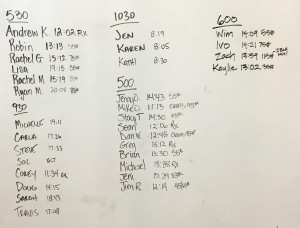 530
Andrew K. 12:02 Rx
Robin 13:13 55#
Rachel G 15:12 35#
Lisa 19:15 55#
Rachel M 15:19 55#
Ryan M. 20:08
930
MICHELLE 19:11
CARLA 17:26
STEVE 17:33
SOL
COREY 11:34 RX
DOUG 19:15
SARAH 18:43
TRAVIS 17:08
1030
JEN 8:19
KAREN 8:05
KATHI 8:30
500
Jenny D. 14:43 55#
Mike D. 11:13
Stacy T 14:30 55#
Sean 12:06 Rx
Dan W. 12:45
Greg 15:12 Rx
Brian 13:30 55#
Michael 18:38 Rx
Jeni 13:24
Jim R. 12:19
600
Wim 14:09 55#
Ivo 14:21 75#
Zach 13:54 115#
Kaylie 13:02 35#